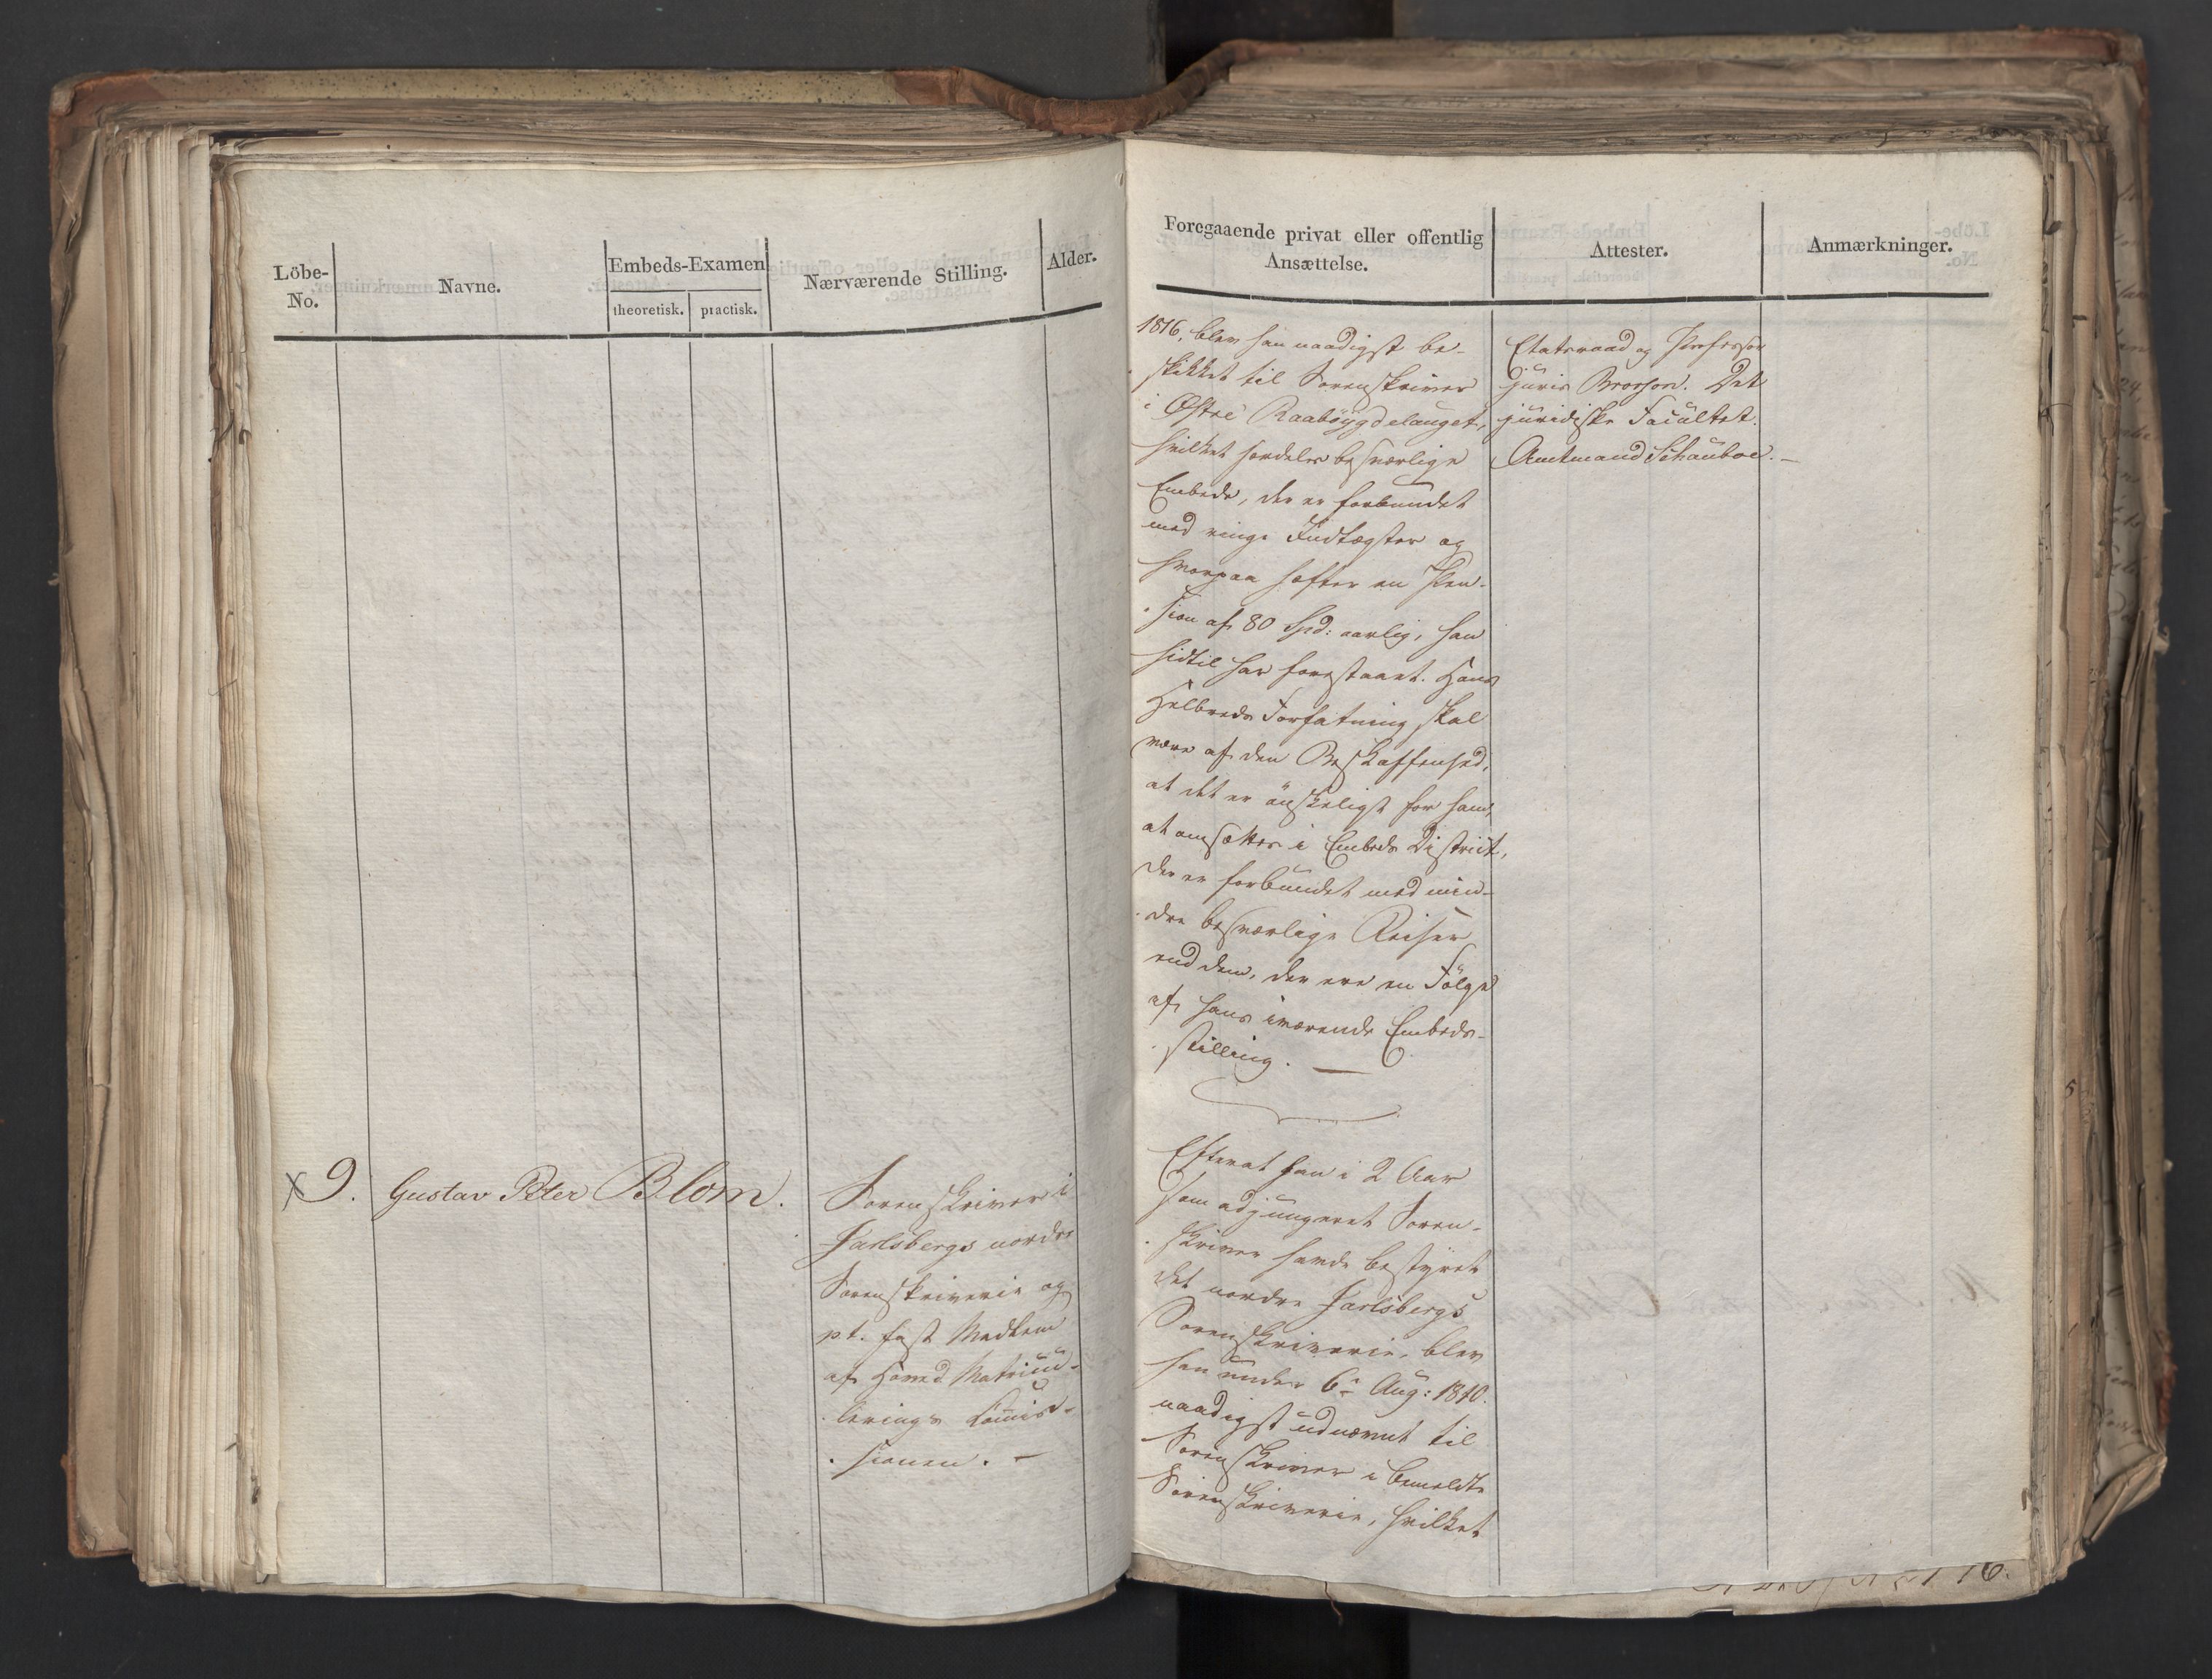 Löbe-
No.
Navne.
Embeds-Examen
theoretisk. practisk.
Nærværende Stilling.
Alder.
9. Gustav Peter Blom.
Sorenskriver i
Jarlsbergs nordre
Sorenskriverie og
pt. fast Medlem
af Hoved Matricu-
lerings Commis-
sionen. —
Foregaaende privat eller offentlig
Ansættelse.
Attester.
Anmærkninger.
1816, blev han naadigst be-
skikket til Sorenskriver
i Østre Raaböygdelauget,
hvilket særdeles besværlige
Embede, der er forbundet
med ringe Indtægter og
hvorpaa hefter en Pen-
sion af 80 Spd: aarlig, han
hidtil har forestaaet. Hans
Helbreds Forfatning skal
være af den Beskaffenhed,
at det er önskeligt for ham,
at omsættes i Embeds District,
der er forbundet med min-
dre besværlige Reiser
end dem, der ere en Fölge
af hans iværende Embeds-
stilling. —
Etatsraad og Professor
juris Brorson. Det
juridiske Facultet.
Amtmand Schouboe. —
Efterat han i 2 Aar
som adjungeret Soren-
skriver havde bestyret
det nordre Jarlsbergs
Sorenskriverie, blev
han under 6te Aug: 1810.
naadigst udnævnt til
Sorenskriver i bemeldte
Sorenskriverie, hvilket